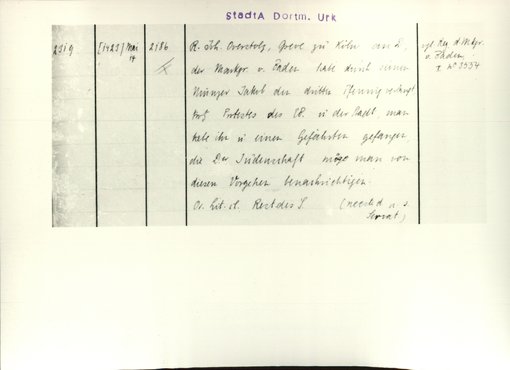 StadtA Dortm. Urk
2319 [1423] Mai 14 2186 R. Joh. Overstolz, Greve zu Köln an D.,
der Markgr. v. Baden habe durch einen
Münzer Jakob den dritten Pfennig verlangt
trotz Protestes des EB. in der Stadt, man
habe ihn u einen Gefährten gefangen,
die Der Judenschaft möge man von
diesem Vorgehen benachrichtigen.
Or. Lit. cl. Rest des S. (necessitad a. s.
Servat)
vgl. Reg. d. Mkgr.
v. Baden
I N° 3534